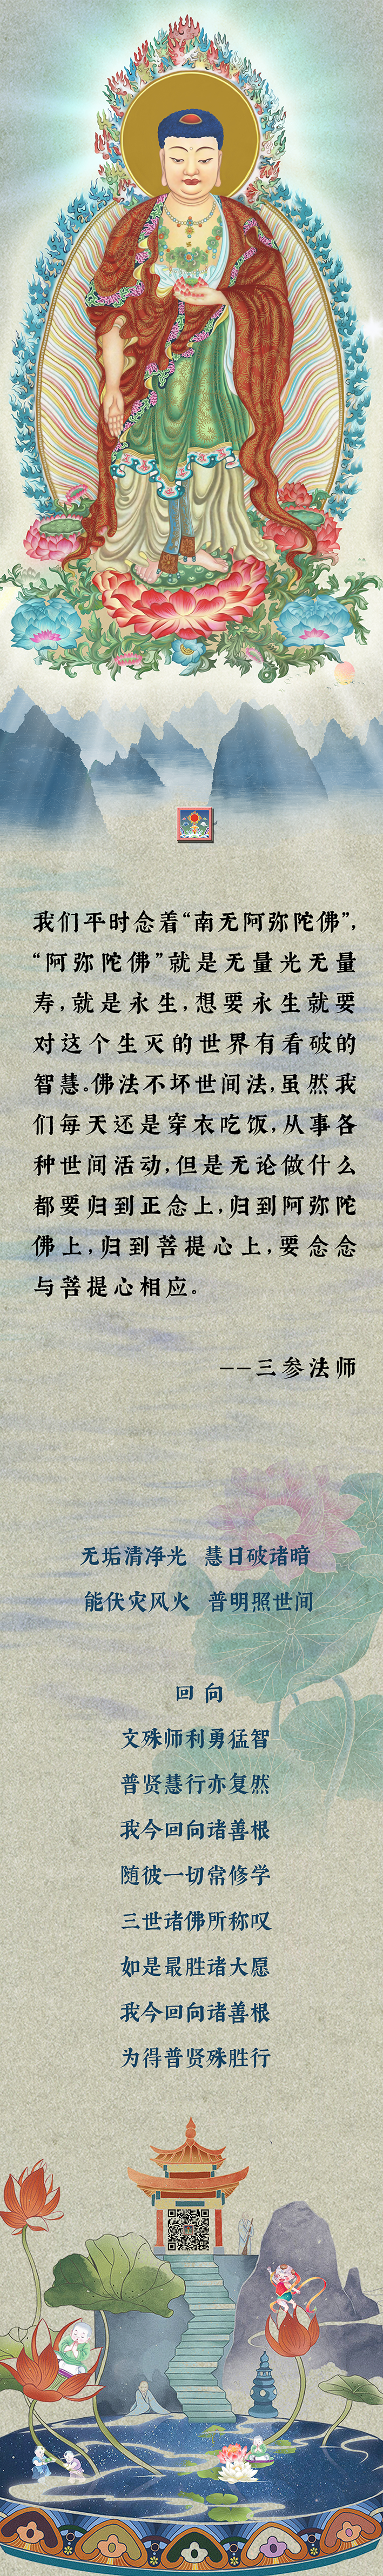 我们平时念着“南无阿弥陀佛”,
“阿弥陀佛”就是无量光无量
寿,就是永生,想要永生就要
对这个生灭的世界有看破的
智慧。佛法不坏世间法,虽然我
们每天还是穿衣吃饭,从事各
种世间活动,但是无论做什么
都要归到正念上,归到阿弥陀
佛上,归到菩提心上,要念念
与菩提心相应。
--三参法师
无垢清净光 慧日破诸暗
能伏灾风火 普明照世间
回 向
文殊师利勇猛智
普贤慧行亦复然
我今回向诸善根
随彼一切常修学
三世诸佛所称叹
如是最胜诸大愿
我今回向诸善根
为得普贤殊胜行